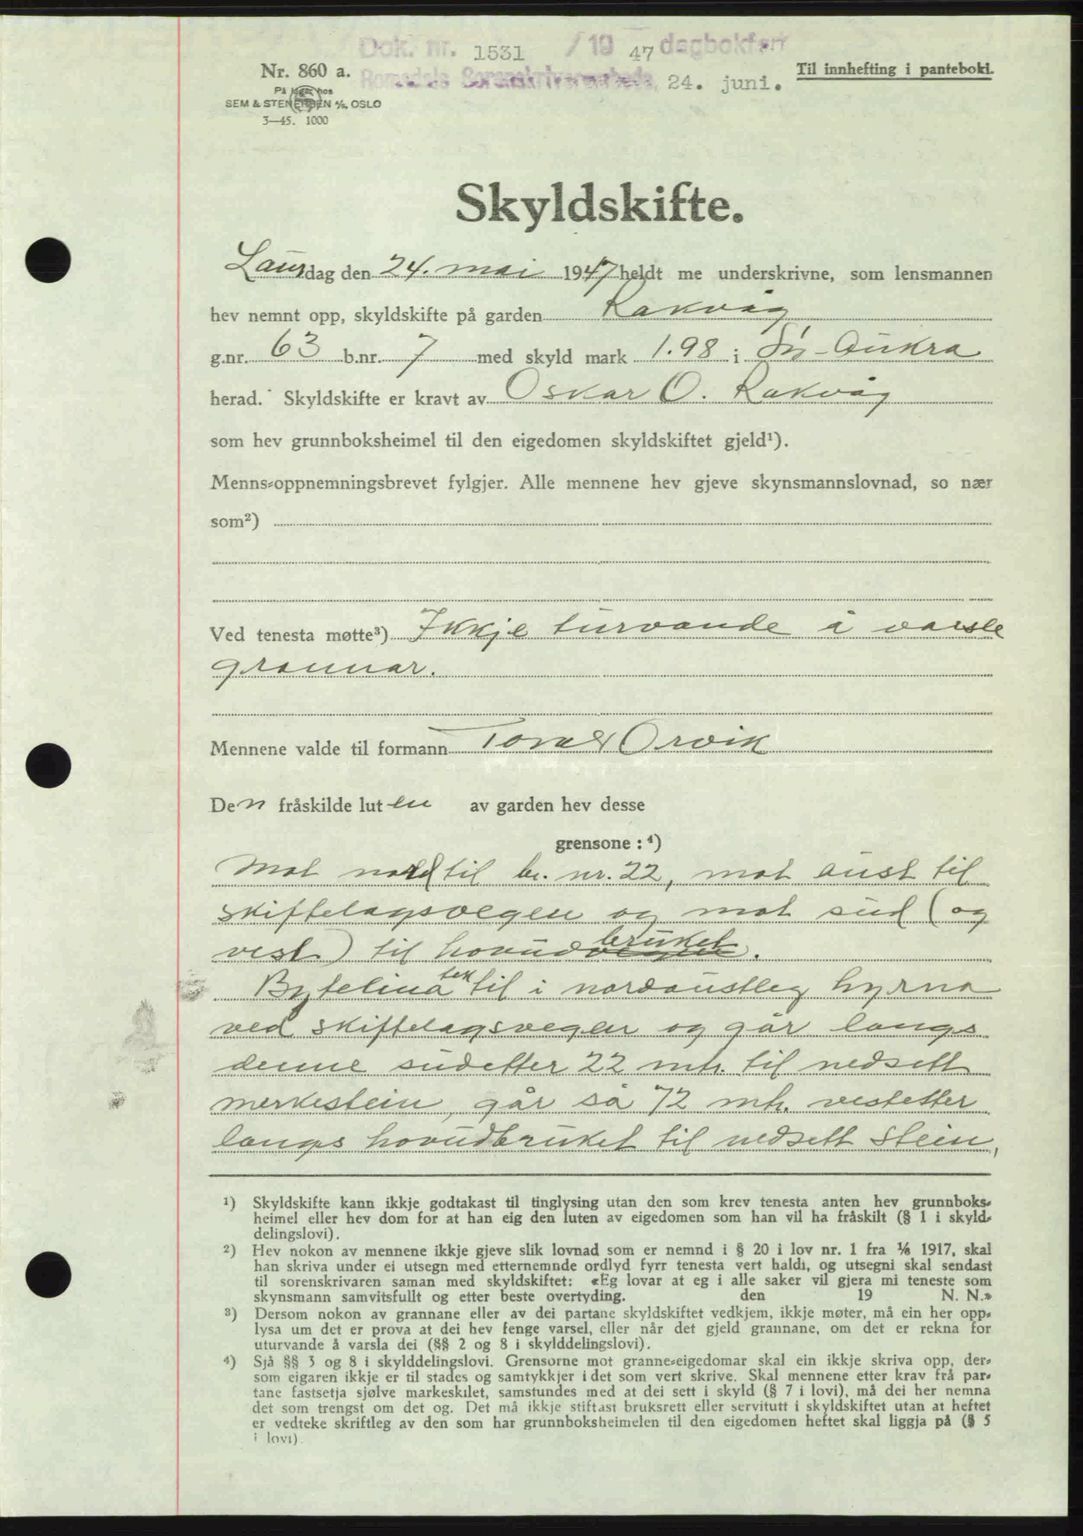 Dok. nr. 1531 / 19 47 dagbokført
Romsdals Sorenskriverembede, 24. juni.
Nr. 860 a.
Til innhefting i pantebok.
På lager hos
SEM & STENERSEN A/S, OSLO
3—45. 1000
Skyldskifte.
Laurdag den 24. mai 1947 heldt me underskrivne, som lensmannen
hev nemnt opp, skyldskifte på garden Rakvåg
g.nr. 63 b.nr. 7 med skyld mark 1.98 i Sr-Aukra
herad. Skyldskifte er kravt av Oskar O. Rakvåg
som hev grunnboksheimel til den eigedomen skyldskiftet gjeld¹).
Menns-oppnemningsbrevet fylgjer. Alle mennene hev gjeve skynsmannslovnad, so nær
som²)
Ved tenesta møtte³) Ikkje turvande å varsle
grannar.
Mennene valde til formann Orvik
Den fråskilde luten av garden hev desse
grensone : ⁴)
Mot nord til br. nr. 22, mot aust til
skiftelagsvegen og mot sud (og
vest) til hovudbruket.
Bytelina tek til i nordaustleg hyrna
ved skiftelagsvegen og går langs
denne sudetter 22 mtr. til nedsett
merkestein, går så 72 mtr. vestetter
langs hovudbruket til nedsett stein,
¹) Skyldskifte kann ikkje godtakast til tinglysing utan den som krev tenesta anten hev grunnboks-
heimel eller hev dom for at han eig den luten av eigedomen som han vil ha fråskilt (§ 1 i skyld-
delingslovi).
²) Hev nokon av mennene ikkje gjeve slik lovnad som er nemnd i § 20 i lov nr. 1 fra ⅛ 1917, skal
han skriva under ei utsegn med etternemnde ordlyd fyrr tenesta vert haldi, og utsegni skal sendast
til sorenskrivaren saman med skyldskiftet: «Eg lovar at eg i alle saker vil gjera mi teneste som
skynsmann samvitsfullt og etter beste overtyding. den 19 N. N.»
³) Dersom nokon av grannane eller av dei partane skyldskiftet vedkjem, ikkje møter, må ein her opp-
lysa um det er prova at dei hev fenge varsel, eller når det gjeld grannane, om det er rekna for
uturvande å varsla dei (§§ 2 og 8 i skylddelingslovi).
⁴) Sjå §§ 3 og 8 i skylddelingslovi. Grensorne mot granne-eigedomar skal ein ikkje skriva opp, der-
som eigaren ikkje er til stades og samtykkjer i det som vert skrive. Skal mennene etter krav frå par-
tane fastsetja sjølve markeskilet, samstundes med at dei sett i skyld (§ 7 i lovi), må dei her nemna
det som trengst om det og. Det må ikkje stiftast bruksrett eller servitutt i skyldskiftet utan at heftet
er vedteke skriftleg av den som har grunnboksheimelen til den eigedomen heftet skal liggja på (§ 5
i lovi)